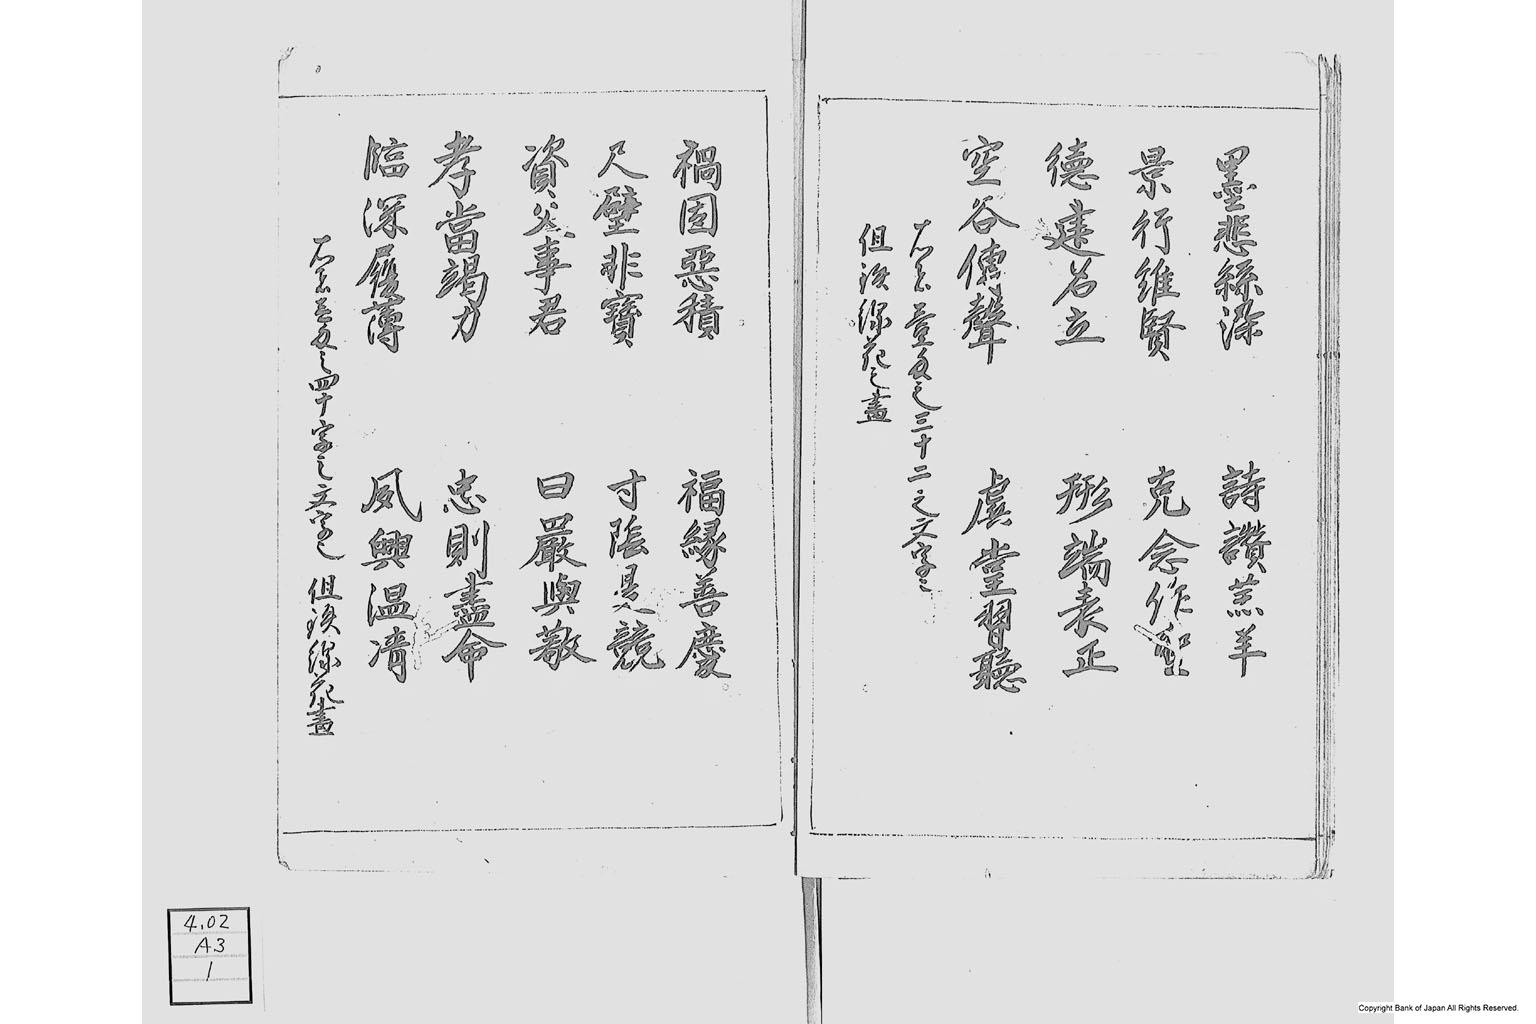 墨悲絲染　詩讃羔羊
景行維賢　克念作聖
德建名立　形端表正
空谷傳聲　虚堂習聽
三十二之文字
但
禍因惡積　福縁善慶
尺璧非寶　寸陰是競
資父事君　曰嚴與敬
孝當竭力　忠則盡命
臨深履薄　夙興温凊
四十字之文字
但
4.02
A3
1
Copyright Bank of Japan All Rights Reserved.